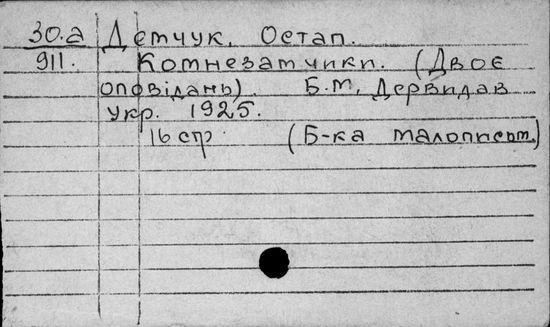 30.а Демчук, Остап.
911. Комнезамчики. (Двоє
оповідань). Б.М, Держвидав
Укр. 1925.
16 стр. (Б-ка малописьм.)